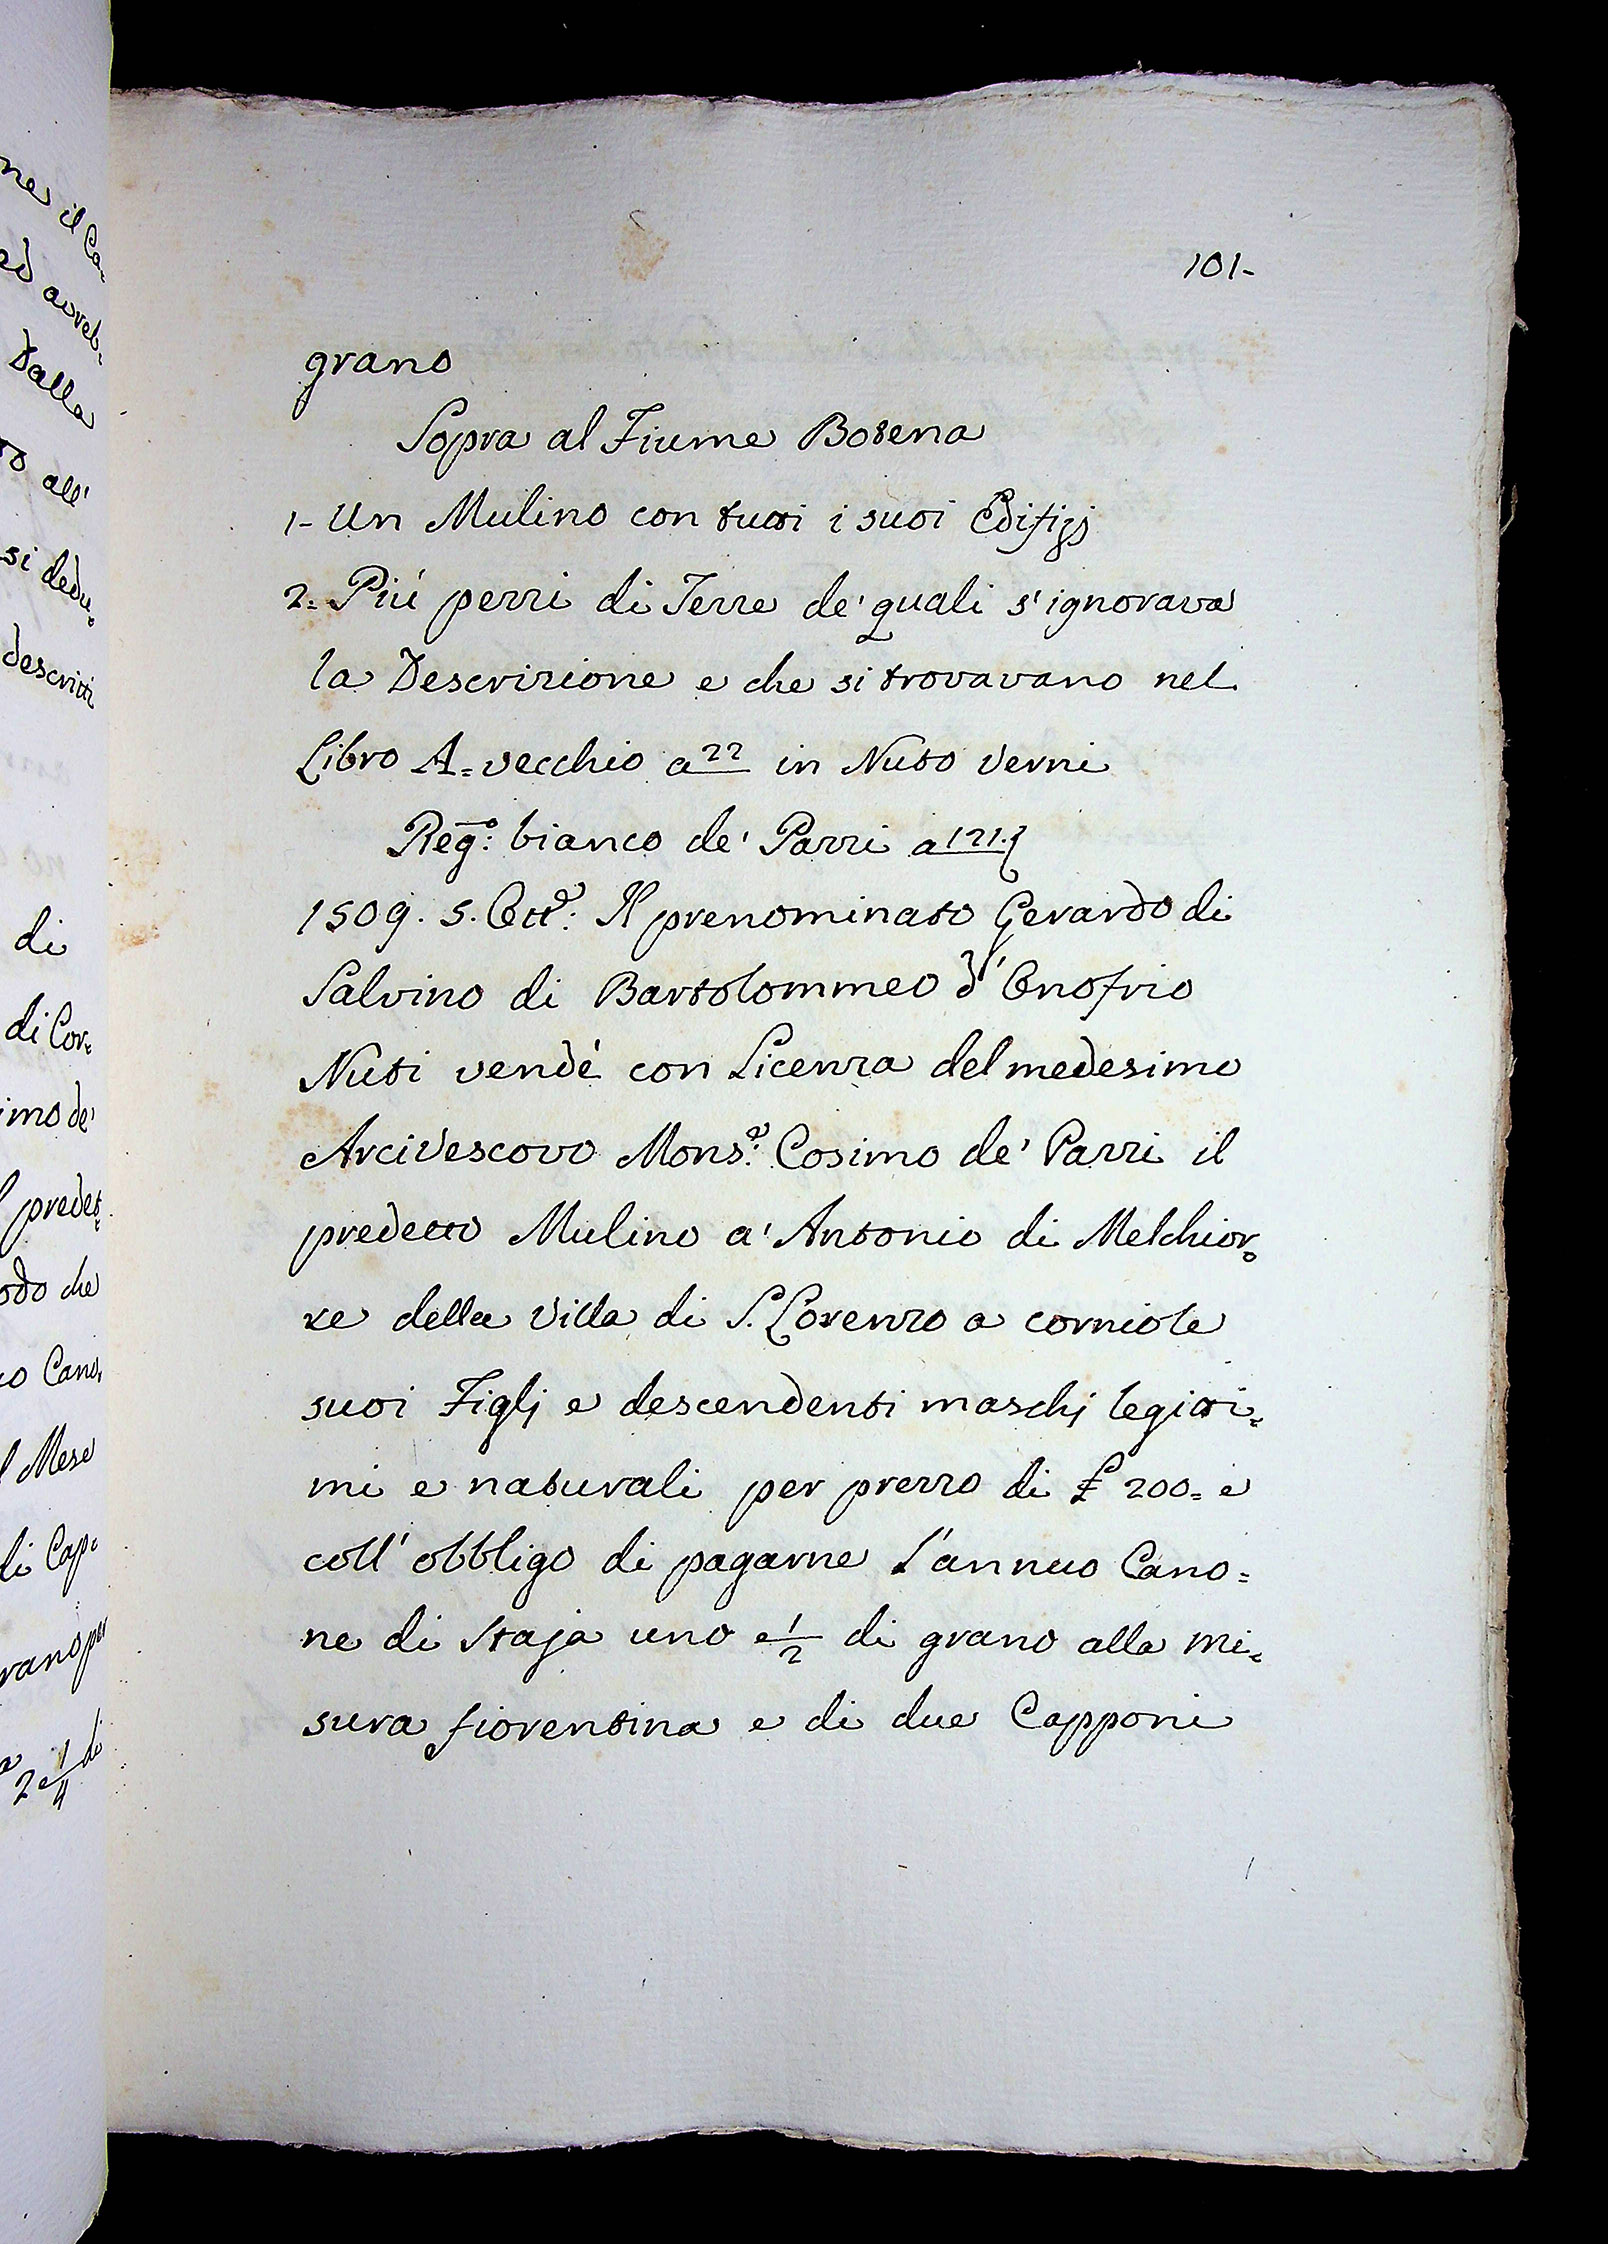 ne il Ca-
ed avreb=
Dalla
to all'
si dedu=
descritti
di
di Cor=
imo de'
l predet=
odo che
co Cano=
l Mese
di Cap=
rano per
2 e 1/4 di
101-
grano
Sopra al Fiume Botena
1- Un Mulino con tutti i suoi Edifizj
2= Piú pezzi di Terre de' quali s'ignorava
la Descrizione e che si trovavano nel
Libro A= vecchio a 22 in Nuto Verni
Reg.º bianco de' Pazzi a 121.
1509. 5. Ott.e: Il prenominato Gerardo di
Salvino di Bartolommeo d' Onofrio
Nuti vendé con Licenza del medesimo
Arcivescovo Mons.e: Cosimo de' Pazzi il
predetto Mulino a' Antonio di Melchior=
re della Villa di S. Lorenzo a corniole
suoi Figlj e descendenti maschj legitti=
mi e naturali per prezzo di £ 200= e
coll' obbligo di pagarne l'annuo Cano=
ne di Staja uno e 1/2 di grano alla mi=
sura fiorentina e di due Capponi